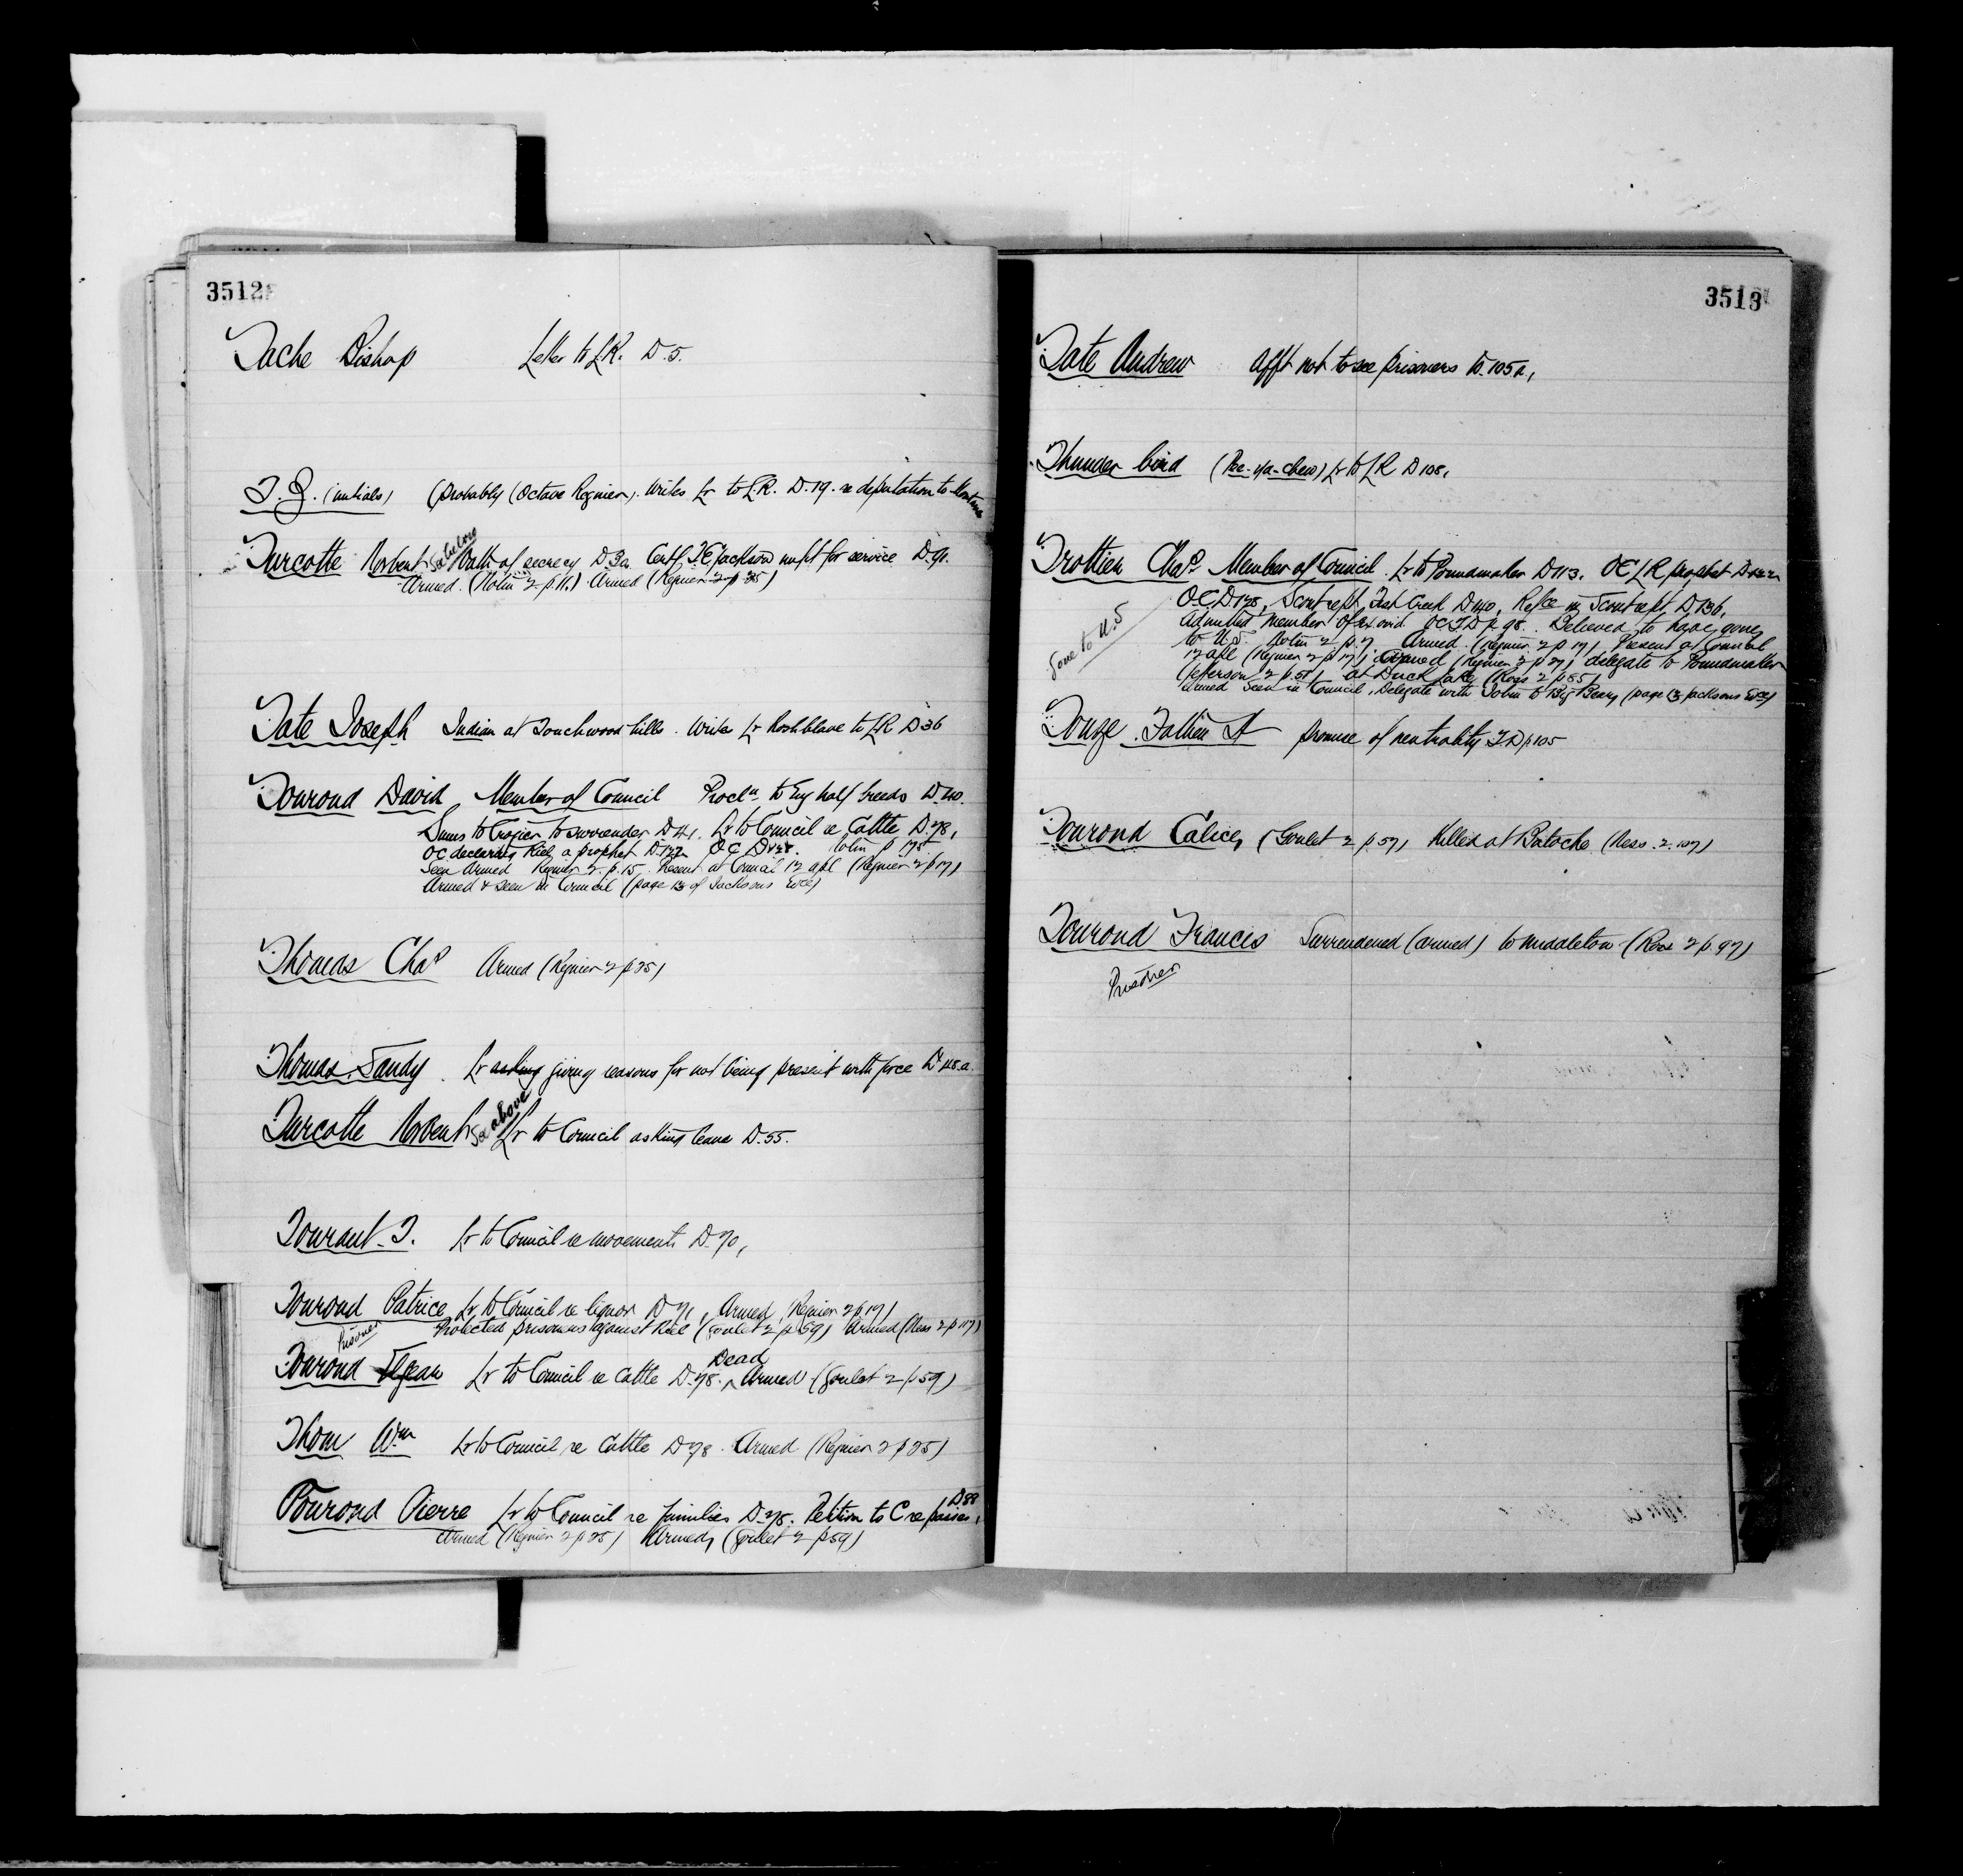 3512
Tache Bishop Letter to LR. D.5.
T.Z. (initials) (probably (Octave Regnier). Writes Lr to LR. D.19. re deputation to Montana
Turcotte Norbert See below Oath of secrecy D3a. Certf. T.E. Jackson unfit for service D91.
Armed. (Nolin 2 p 11.) Armed (Regnier 2 p 25)
Tate Joseph Indian at Touchwood hills. Writes Lr Rochblave to LR D36
Tourond David Member of Council Procln to Eng half breeds D.40.
Sums to Crozier to surrender D41. Lr to Council re Cattle D.78,
OC declaring Riel a prophet D.122 OC D128. Nolin p 175
Seen Armed Regnier 2 p.15. Present at Council 12 apl (Regnier 2 p 17)
Armed & seen in Council (page 13 of Jacksons Evce)
Thomas Chas Armed (Regnier 2 p 25)
Thomas Sandy. Lr asking giving reasons for not being present with force D.48.a.
Turcotte Norbert See above Lr to Council asking leave D.55.
Tourant T. Lr to Council re movements D.70,
Tourond Patrice Lr to Council re liquor D71, Armed (Regnier 2 p 17)
Prisoner Protected prisoners against Riel (Goulet 2 p 59) Armed (Ness 2 p 117)
Dead
Tourond Elzear Lr to Council re Cattle D.78. Armed (Goulet 2 p 59)
Thom Wm Lr to Council re Cattle D78. Armed (Regnier 2 p 25)
Tourond Pierre Lr to Council re families D.78. Petition to C re passes, D88
Armed (Regnier 2 p 25) Armed, (Goulet 2 p 59)
3513
Tate Andrew Afft not to see prisoners D.105a,
Thunder bird (Pee-ya-chew) Lr to LR D108,
Trottier Chas Member of Council. Lr to Poundmaker D113. OC LR prophet D122
OC D128, Scout rept, Fish Creek D140, Refce in Scout rept D136,
Gone to U.S
Admitted Member of Ex ovid OC T.D p 98. Believed to have gone
to U.S. Nolin 2 p.7 Armed. (Regnier 2 p 17) Present at Council
12 apl (Regnier 2 p 17) Armed (Regnier 2 p 27) delegate to Poundmaker
(Jefferson 2 p.51) at Duck Lake (Ross 2 p 85)
Armed Seen in Council, Delegate with John to Big Bear, (page 13 Jacksons Evce)
Touze Father A promise of neutrality T.D p 105
Tourond Calice, (Goulet 2 p 57) Killed at Batoche (Ness. 2. 107)
Tourond Francis Surrendered (armed) to Middleton (Ross 2 p. 97)
Prisoner